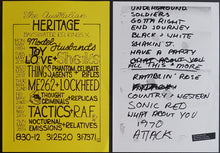 The Australian
HERITAGE
Model Husbands
TOY
LOVE Singles
THINGS PHANTOM CELIBATE
AGENTS RIFLES
ME262 LOCKHEED
THOUGHT CRIMINALS REPLICAS
TACTICS R.A.F.
NOCTURNAL EMISSIONS RELATIVES
8:30-12 312520 317371
UNDERGROUND
SOLDIERS
GOTTA RIGHT
END JOURNEY
BLACK & WHITE
SHAKIN' ST.
HAVE A PARTY
WHAT ABOUT YOU
ALL THIS & MORE
RAMBLIN' ROSE
COUNTRY & WESTERN
SONIC RED
WHAT ABOUT YOU
1970
ATTACK